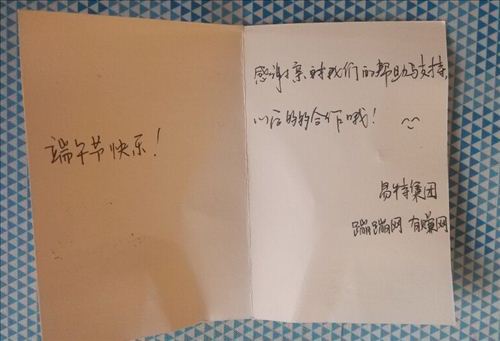 端午节快乐!
感谢亲对我们的帮助与支持,
以后多多合作哦!
易特集团
蹦蹦网 有赚网